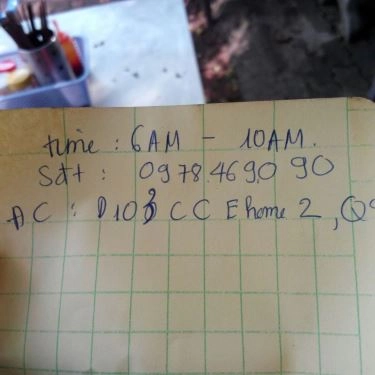 time : 6AM - 10AM.
Sdt : 0978.4690 90
AC : D103 CC Ehome 2, Q9